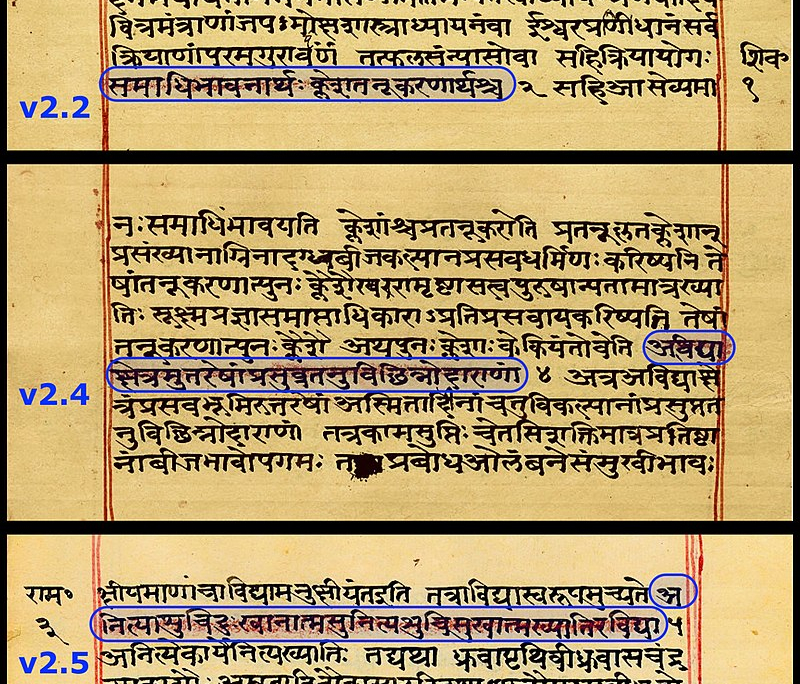 वित्रमंत्राणांजपःमोक्षशास्त्राध्यायनंवा ईश्वरप्रणीधानंसर्व
क्रियाणांपरमगुरावर्पणं तत्फलसंन्यासोवा सहिक्रियायोगः
समाधिभावनार्थः क्लेशतनूकरणार्थश्च २ सहिआसेव्यमा १
v2.2
नः समाधिंभावयति क्लेशांश्चप्रतनूकरोति प्रतनूकृतक्लेशान्
प्रसंख्यानाग्निनादग्धबीजकल्पानप्रसवधर्मिणः करिष्यति ते
षांतनूकरणात्पुनः क्लेशैरपरामृष्टासत्वपुरुषान्यतामात्रख्या
तिः सूक्ष्मप्रज्ञासमाप्ताधिकाराऽप्रतिप्रसवायकरिष्यति तेषां
तनूकरणात्पुनः क्लेशै अथपुनः क्लेशाः के कियंतोवेति अविद्या
क्षेत्रमुत्तरेषांप्रसुप्ततनुविछिन्नोदाराणां ४ अत्रअविद्याक्षे
v2.4
त्रंप्रसवभूमिरुत्तरेषां अस्मितादिनां चतुर्विकल्पानांप्रसुप्तत
नुविछिन्नोदाराणां तत्रकाप्रसुप्तिः चेतसिशक्तिमात्रप्रतिष्ठा
नांबीजभावोपगमः प्रबोधआलंबनेसंमुखीभावः
राम॰ क्षीयमाणांचाविद्यामनुक्षीयंतइति तत्राविद्यास्वरूपमुच्यते अ
३ नित्याशुचिदुःखानात्मसुनित्यशुचिसुखात्मख्यातिरविद्या ५
v2.5
अनित्येकार्येनित्यख्यातिः तद्यथा ध्रुवापृथिवीध्रुवासचंद्र